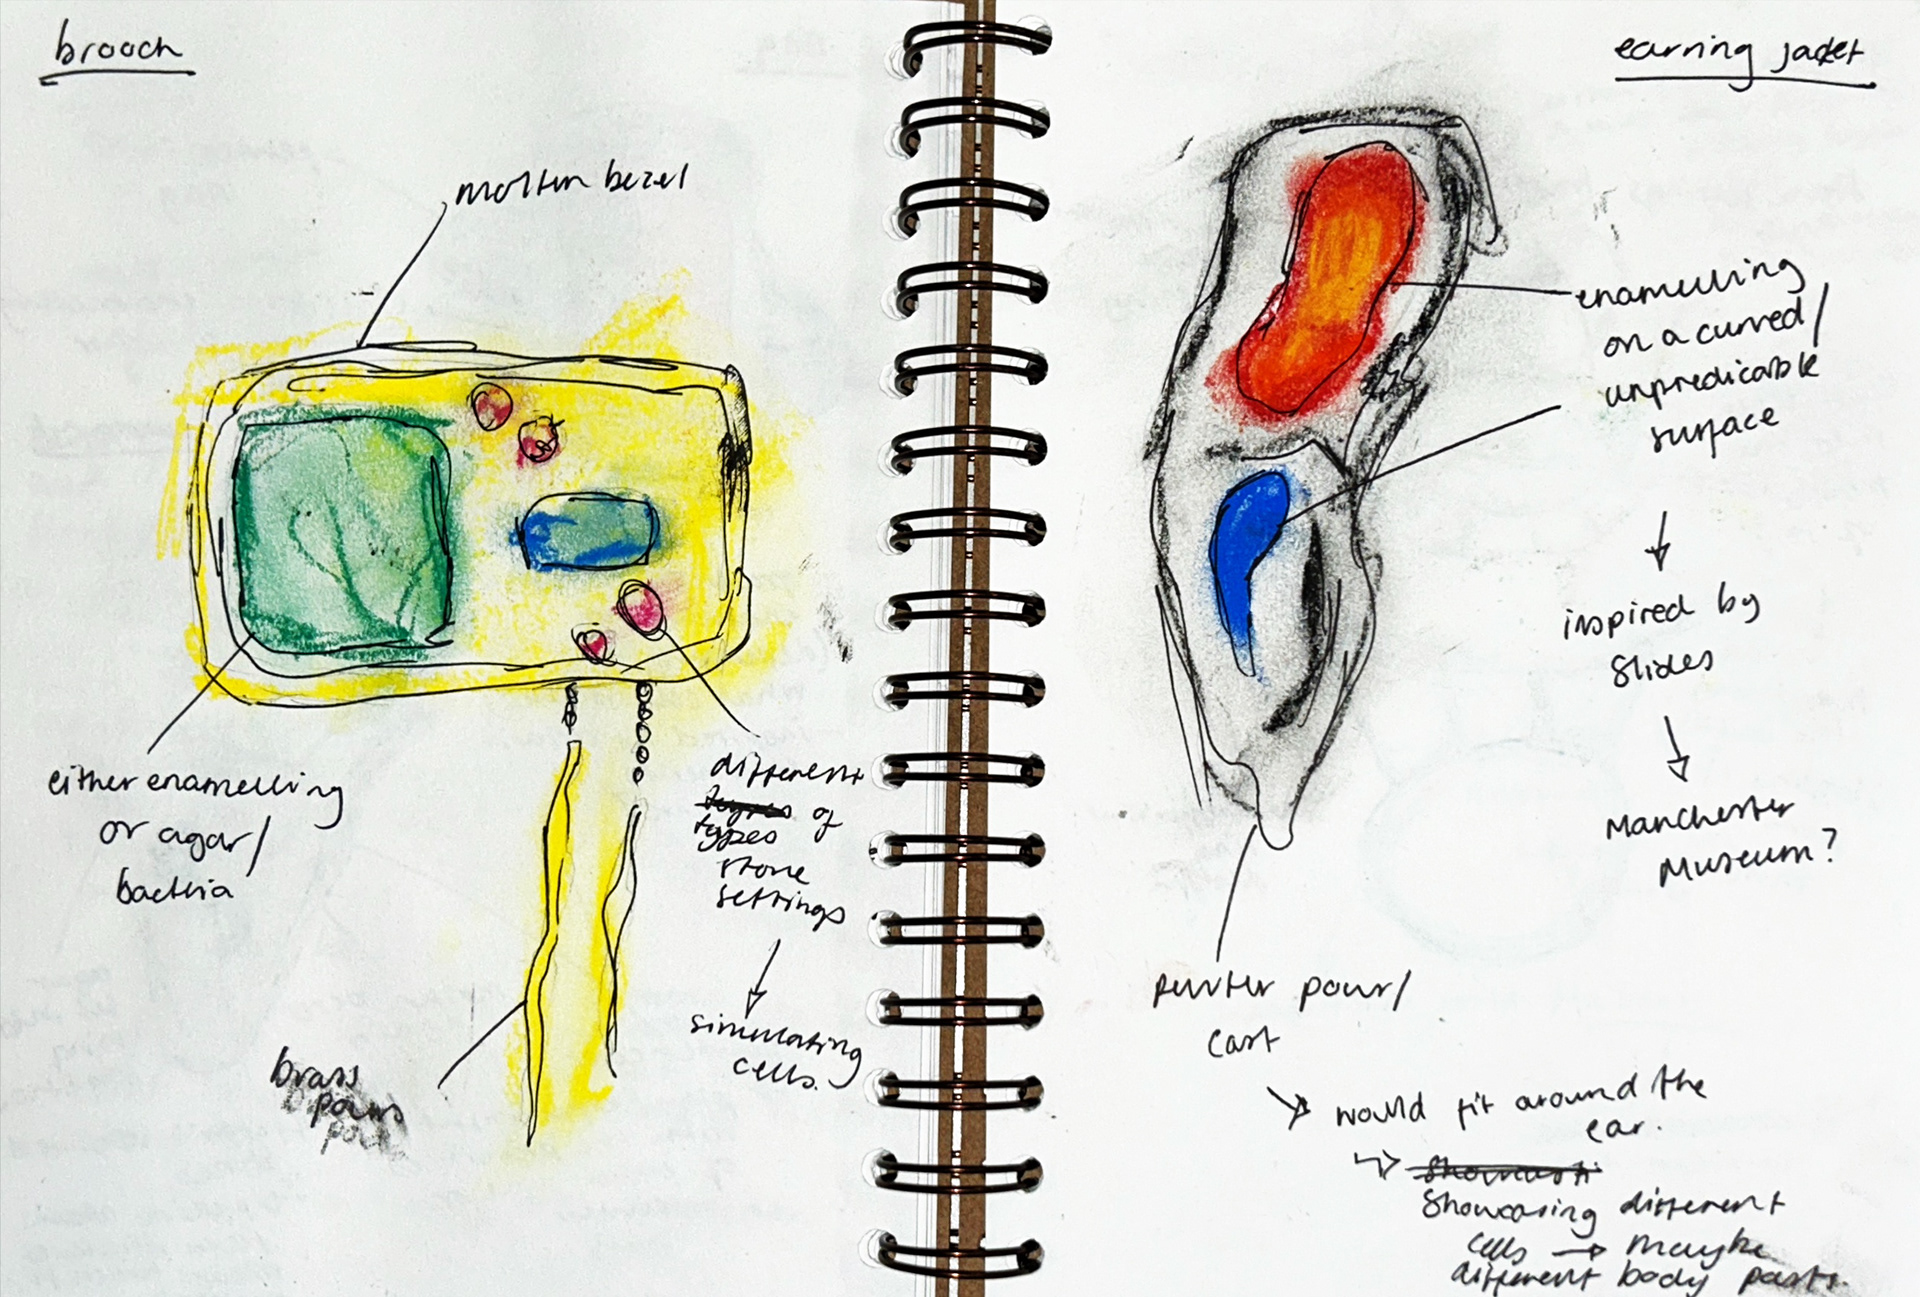 brooch
molten bezel
either enamelling
or agar/
bacteria
different
types of
stone
settings
simulating
cells.
brass
pours
earring jacket
enamelling
on a curved/
unpredicable
surface
inspired by
slides
Manchester
Museum?
pewter pour/
cast
would fit around the
ear.
Showcasing different
cells → maybe
different body parts.